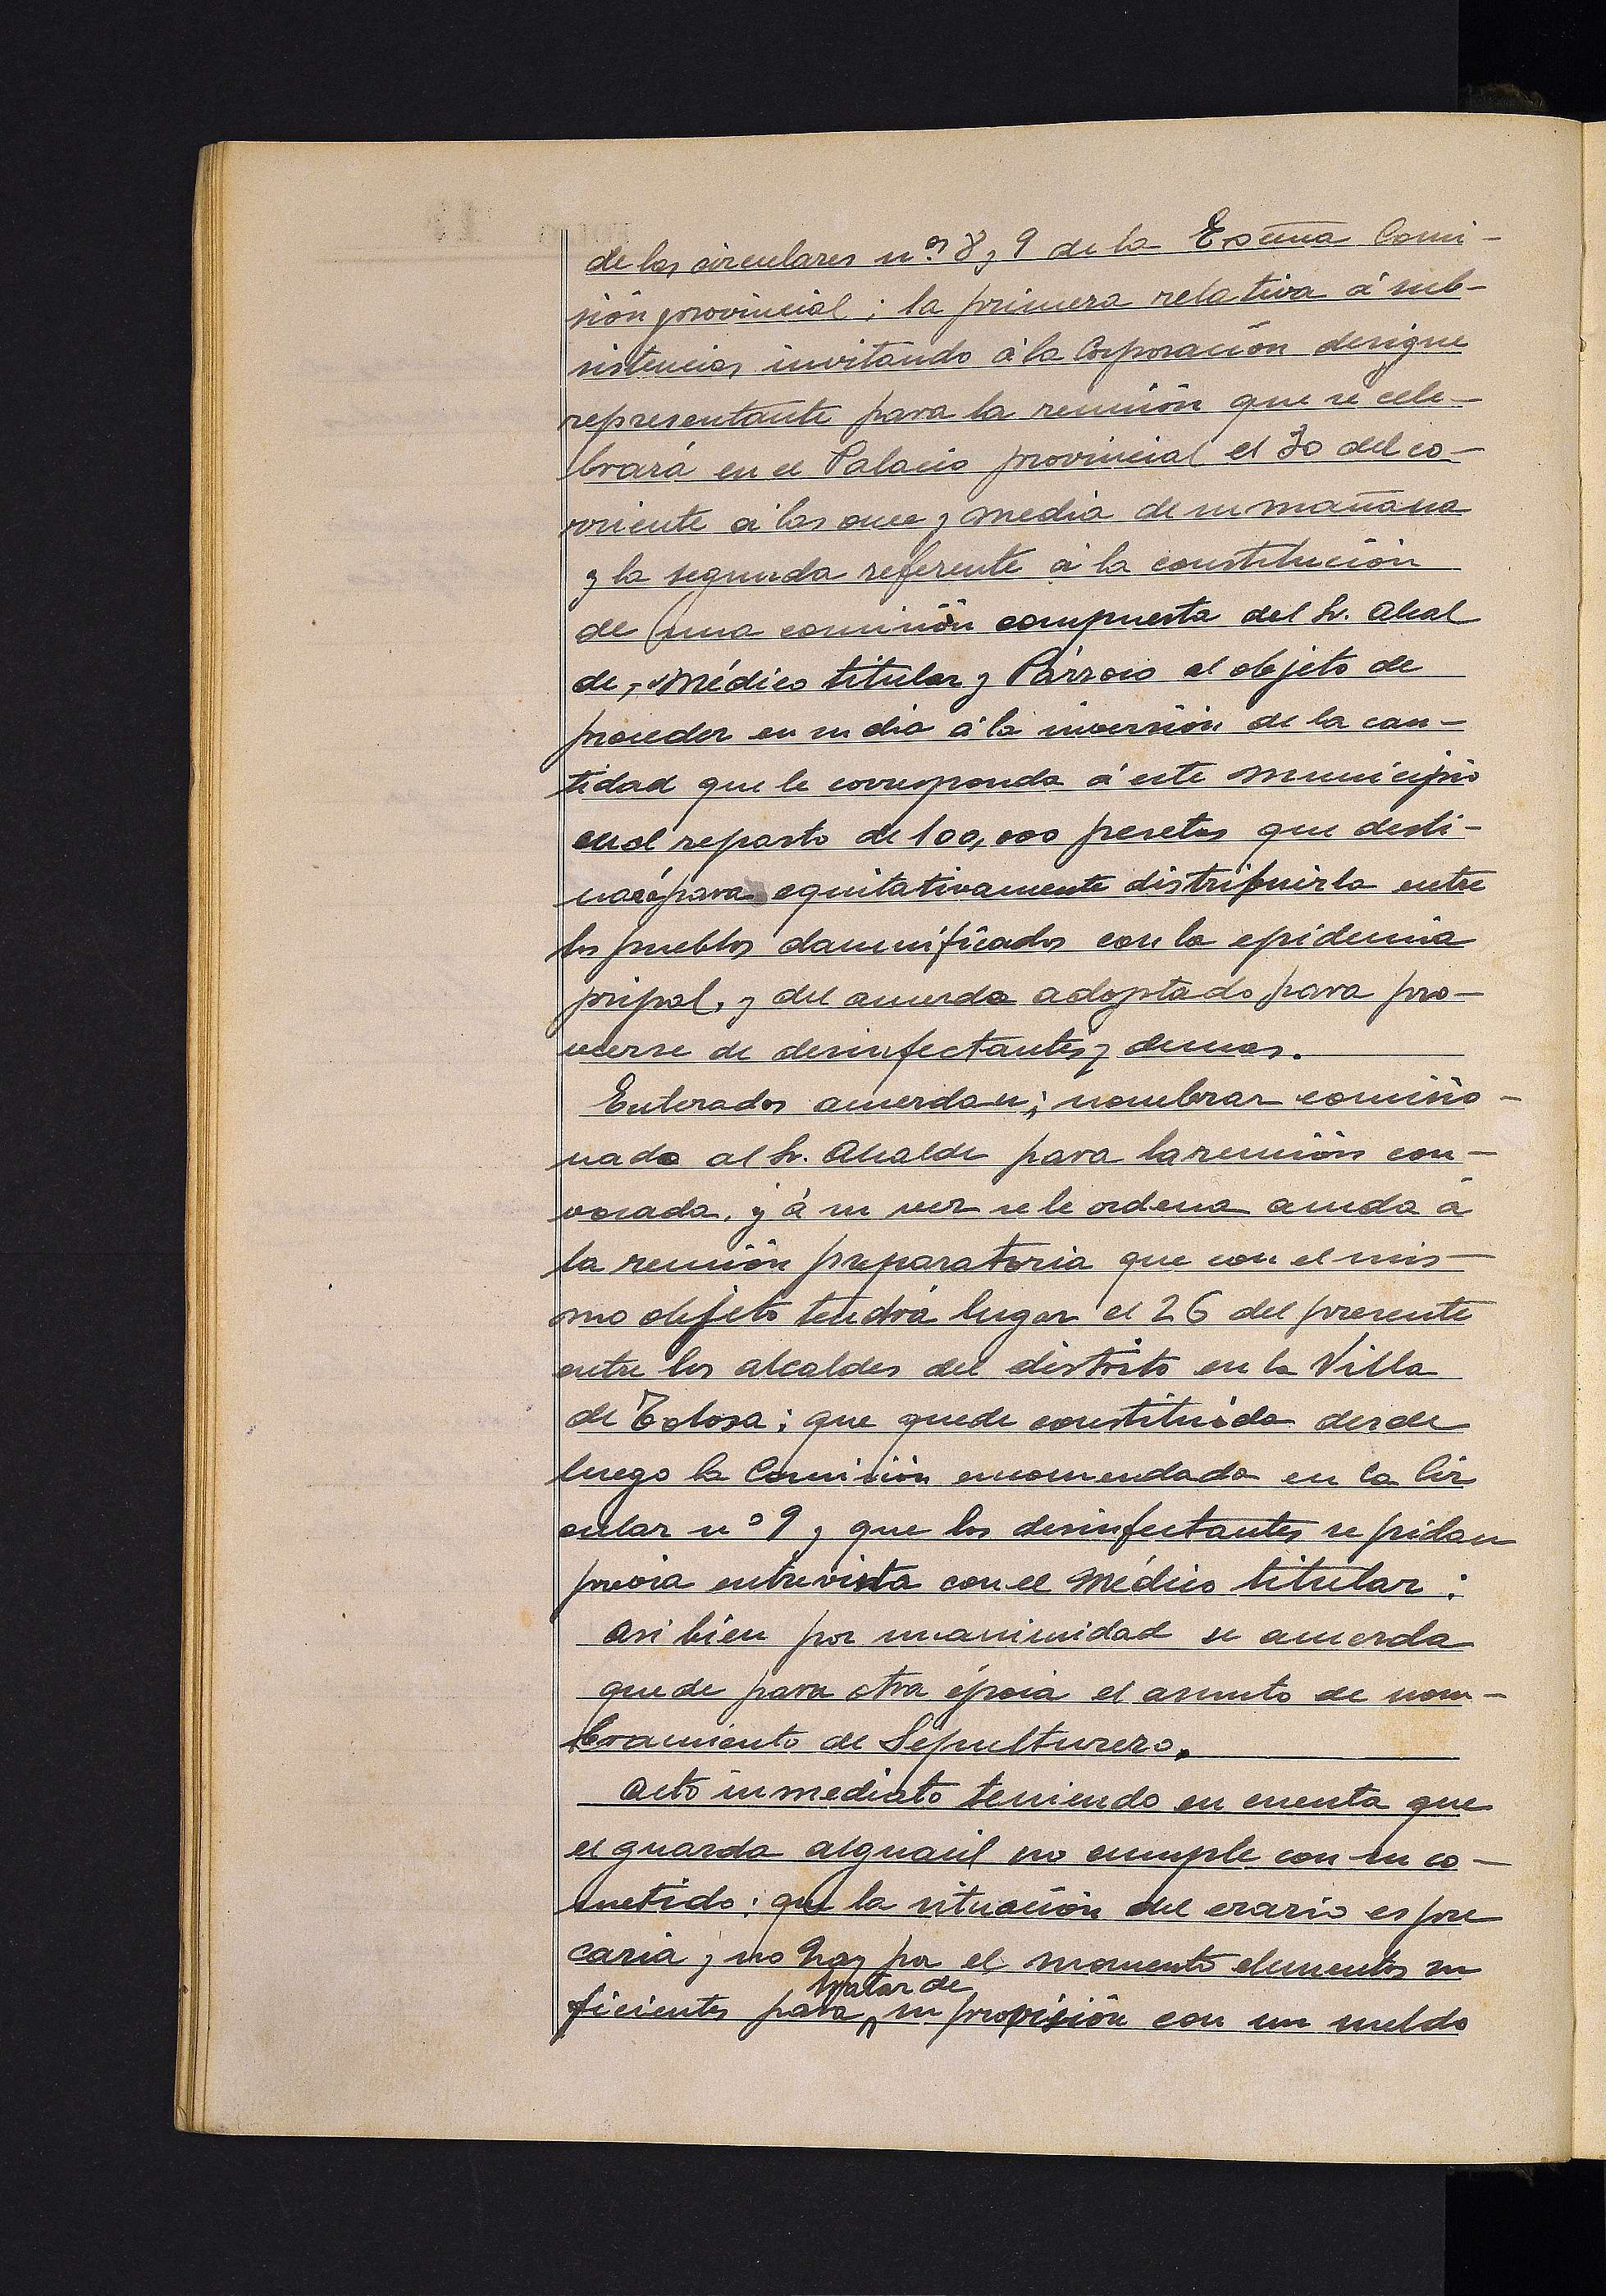 de las circulares n.os 8 y 9 de la Excma Comi-
sión provincial; la primera relativa á sub-
sistencias invitando á la Corporación designe
representante para la reunión que se cele-
brará en el Palacio provincial el 30 del co-
rriente á las once y media de su mañana
y la segunda referente á la constitución
de una comisión compuesta del Sr. Alcal
de, Médico titular y Párroco al objeto de
proceder en su dia á la inversión de la can-
tidad que le corresponda á este municipio
en el reparto de 100,000 pesetas que desti-
nará para equitativamente distribuirla entre
los pueblos damnificados con la epidemia
gripal, y del acuerdo adoptado para pro-
veerse de desinfectantes y demas.
Enterados acuerdan; nombrar comisio-
nado al Sr. Alcalde para la reunión con-
vocada, y á su vez se le ordena acuda á
la reunión preparatoria que con el mis-
mo objeto tendrá lugar el 26 del presente
entre los alcaldes del distrito en la Villa
de Tolosa; que quede constituida desde
luego la Comisión encomendada en la Cir
cular nº 9 y que los desinfectantes se pidan
previa entrevista con el Médico titular:
Asi bien por unanimidad se acuerda
quede para otra época el asunto de nom-
bramiento de Sepulturero.
Acto inmediato teniendo en cuenta que
el guarda alguacil no cumple con su co-
metido: que la situación del erario es pre
caria y no hay por el momento elementos su
ficientes para tratar de su provisión con un sueldo